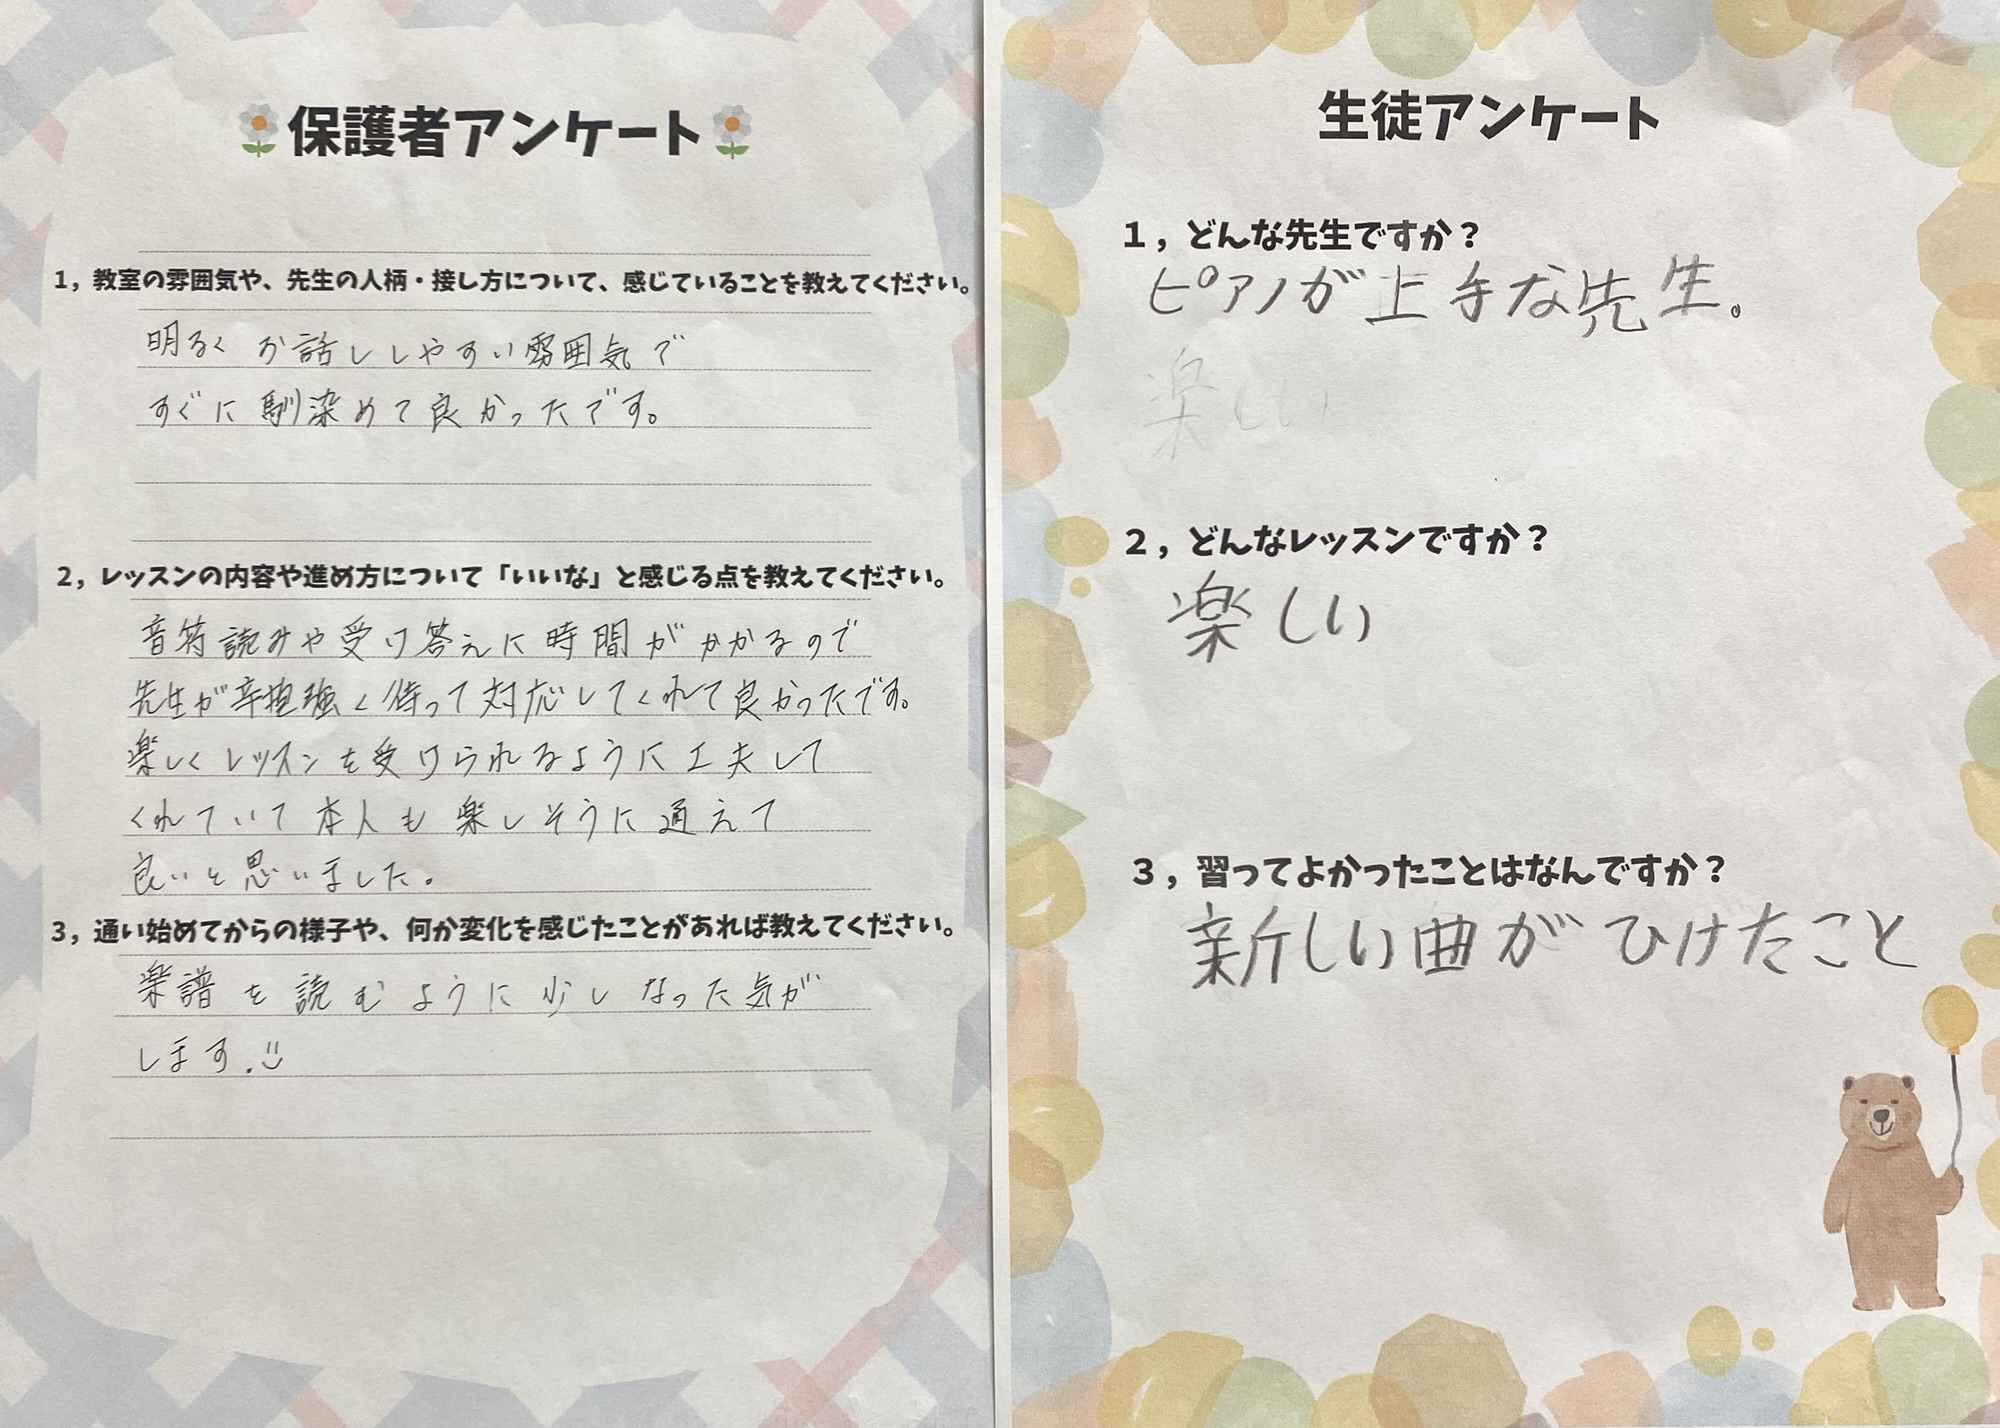 保護者アンケート
1，教室の雰囲気や、先生の人柄・接し方について、感じていることを教えてください。
明るく お話ししやすい雰囲気で
すぐに馴染めて良かったです。
2，レッスンの内容や進め方について「いいな」と感じる点を教えてください。
音符読みや受け答えに時間がかかるので
先生が辛抱強く待って対応してくれて良かったです。
楽しくレッスンを受けられるように工夫して
くれていて本人も楽しそうに通えて
良いと思いました。
3，通い始めてからの様子や、何か変化を感じたことがあれば教えてください。
楽譜を読むように少しなった気が
します.
生徒アンケート
１，どんな先生ですか？
ピアノが上手な先生。
楽しい
２，どんなレッスンですか？
楽しい
３，習ってよかったことはなんですか？
新しい曲がひけたこと